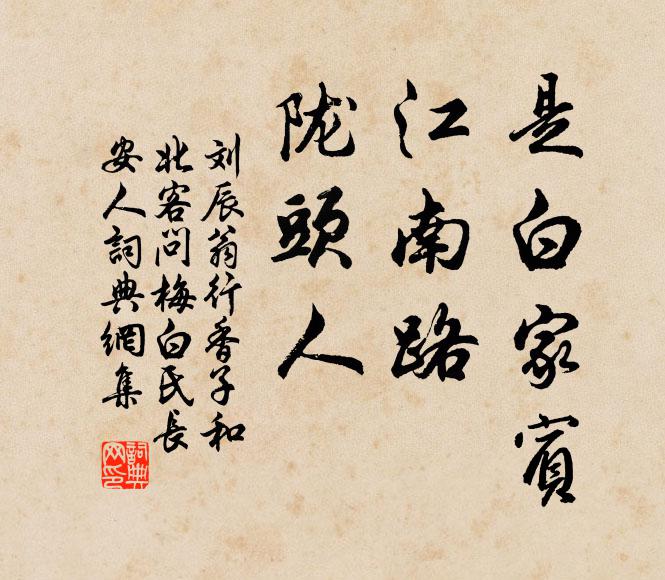 是白家賓
江南路
陇頭人
刘辰翁行香子和
北客问梅白氏长
安人詞典網集
詞典
网印